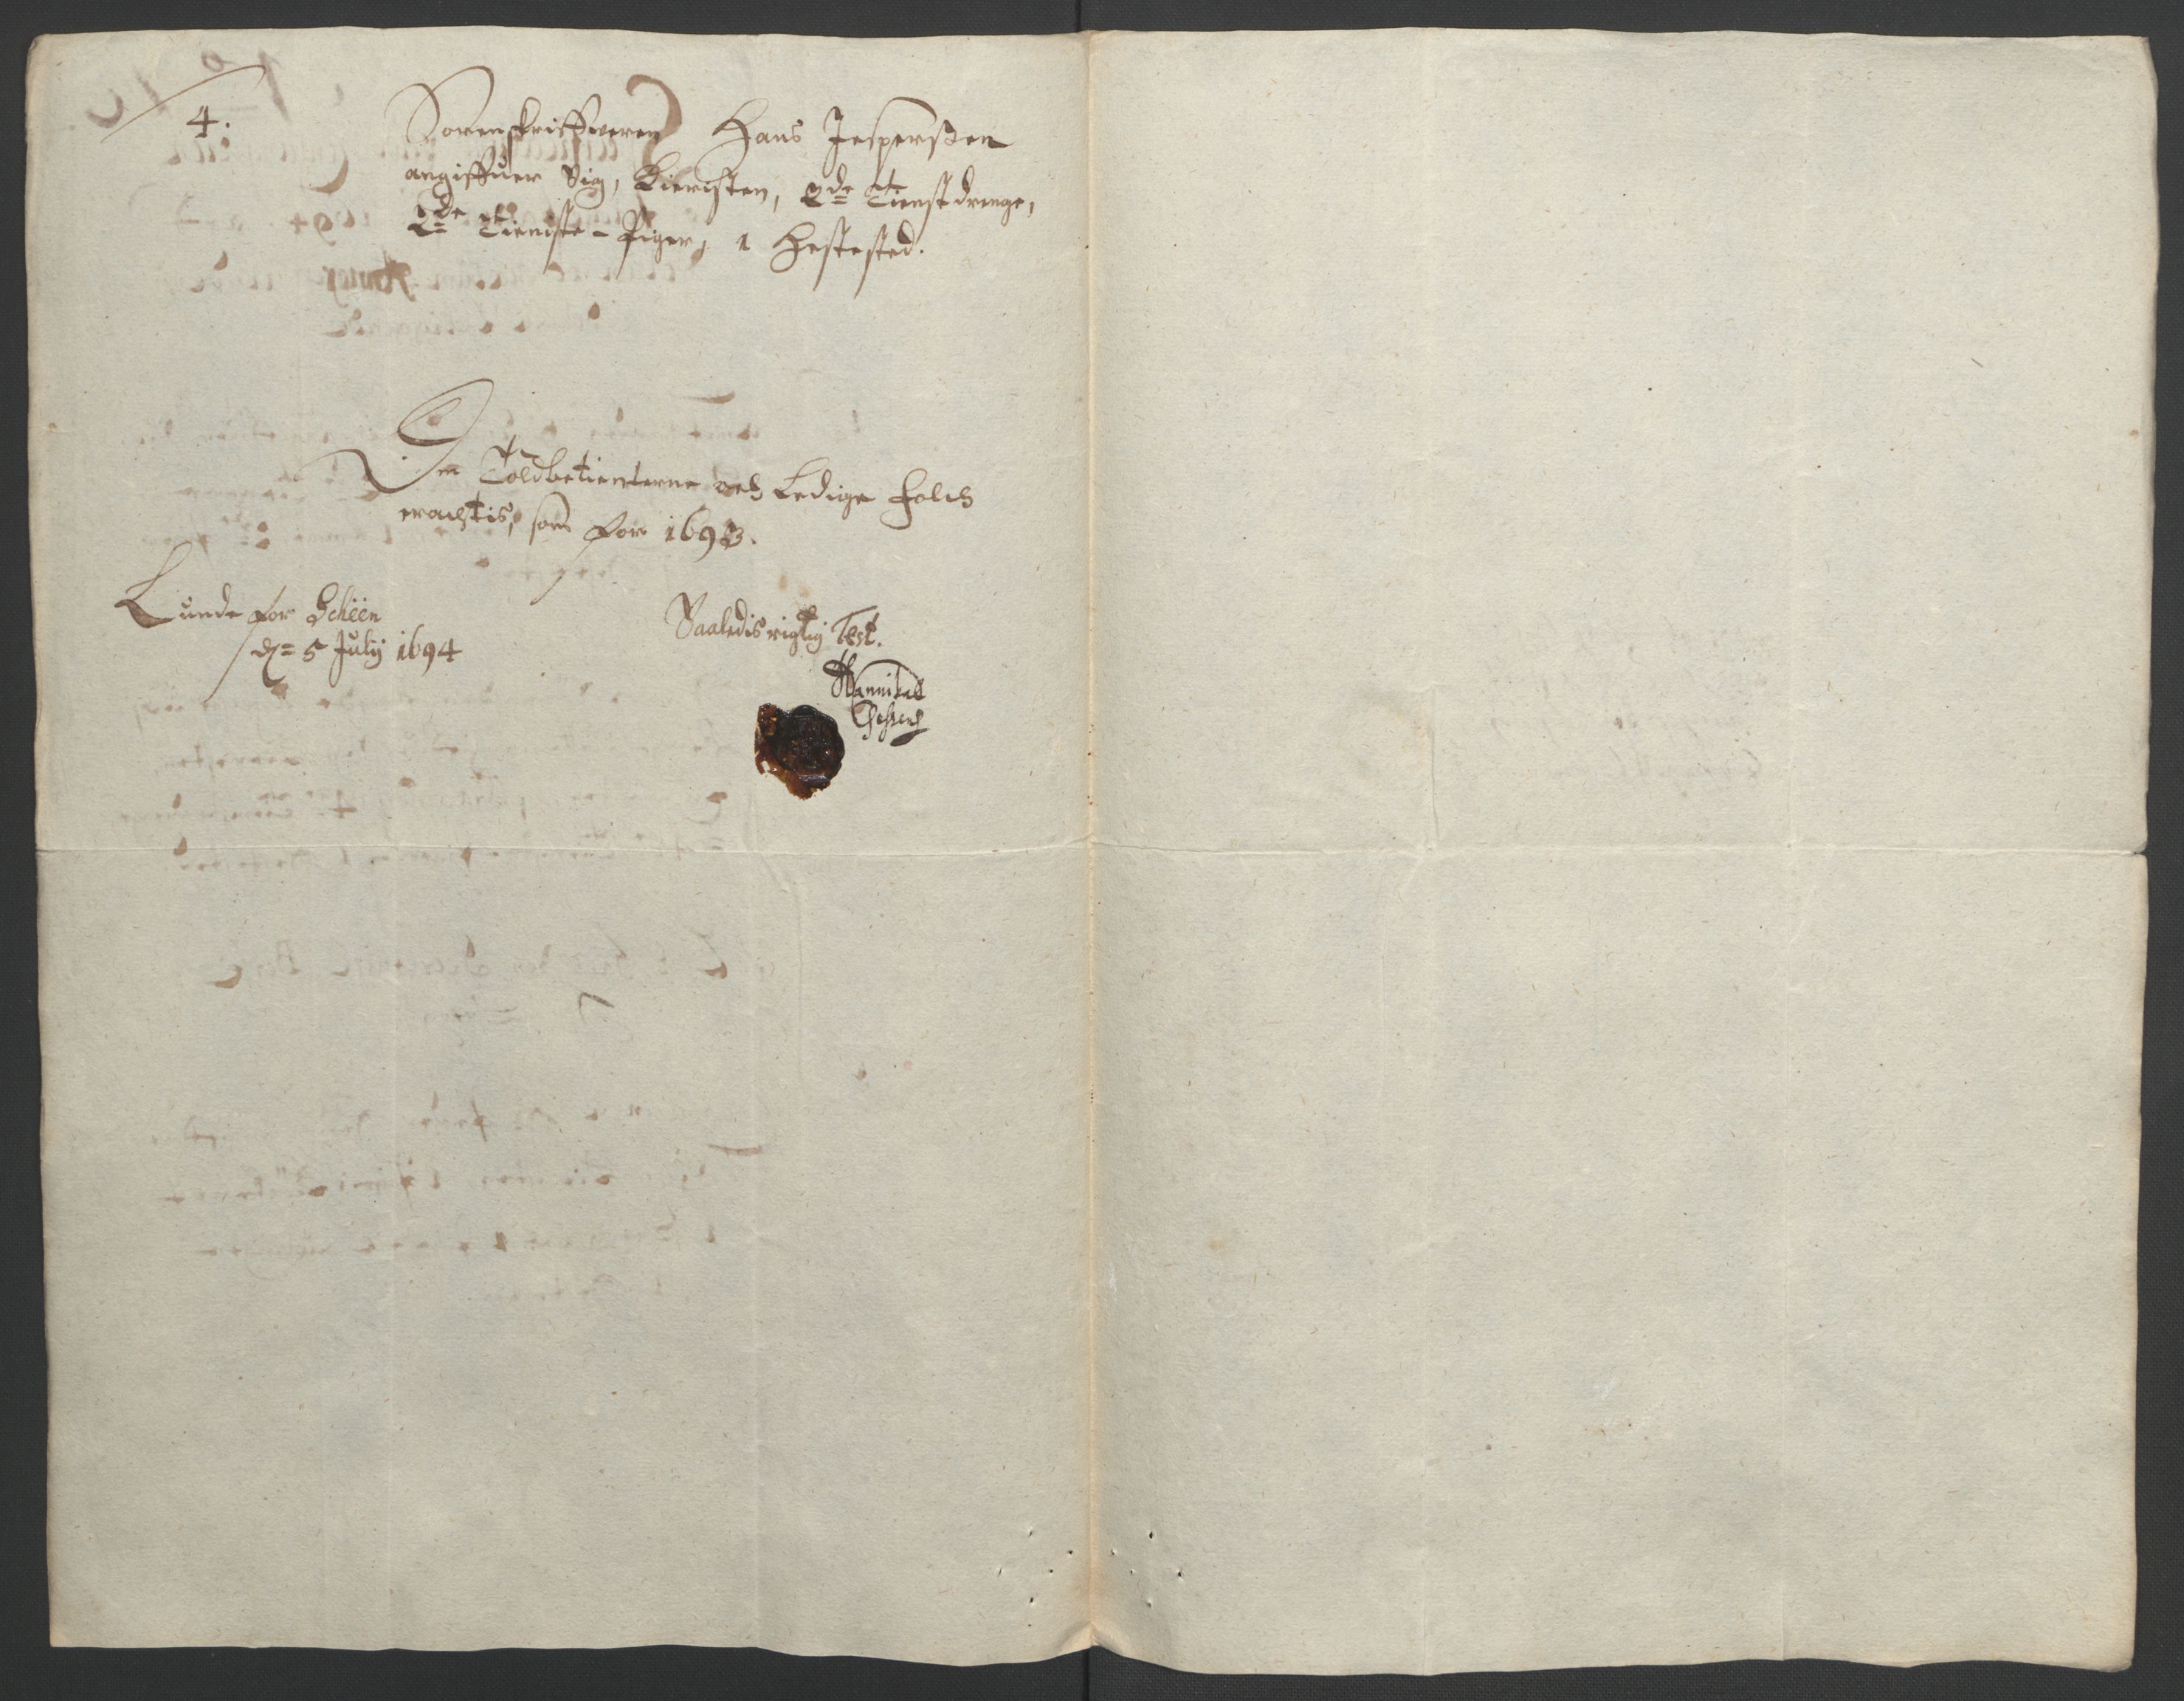 4.
Sorenskriffweren Hans Jesperßen
angiffuer Sig, Kieristen, 2de Tienstdrenge,
2de Tieniste-Piger, 1 Hestested.
Om Toldbetienterne och Ledige Folch
erachtis, som for 1693.
Lunde for Schëen
dn= 5 Julij 1694
Saaledis rigtig Test.
Hannibal